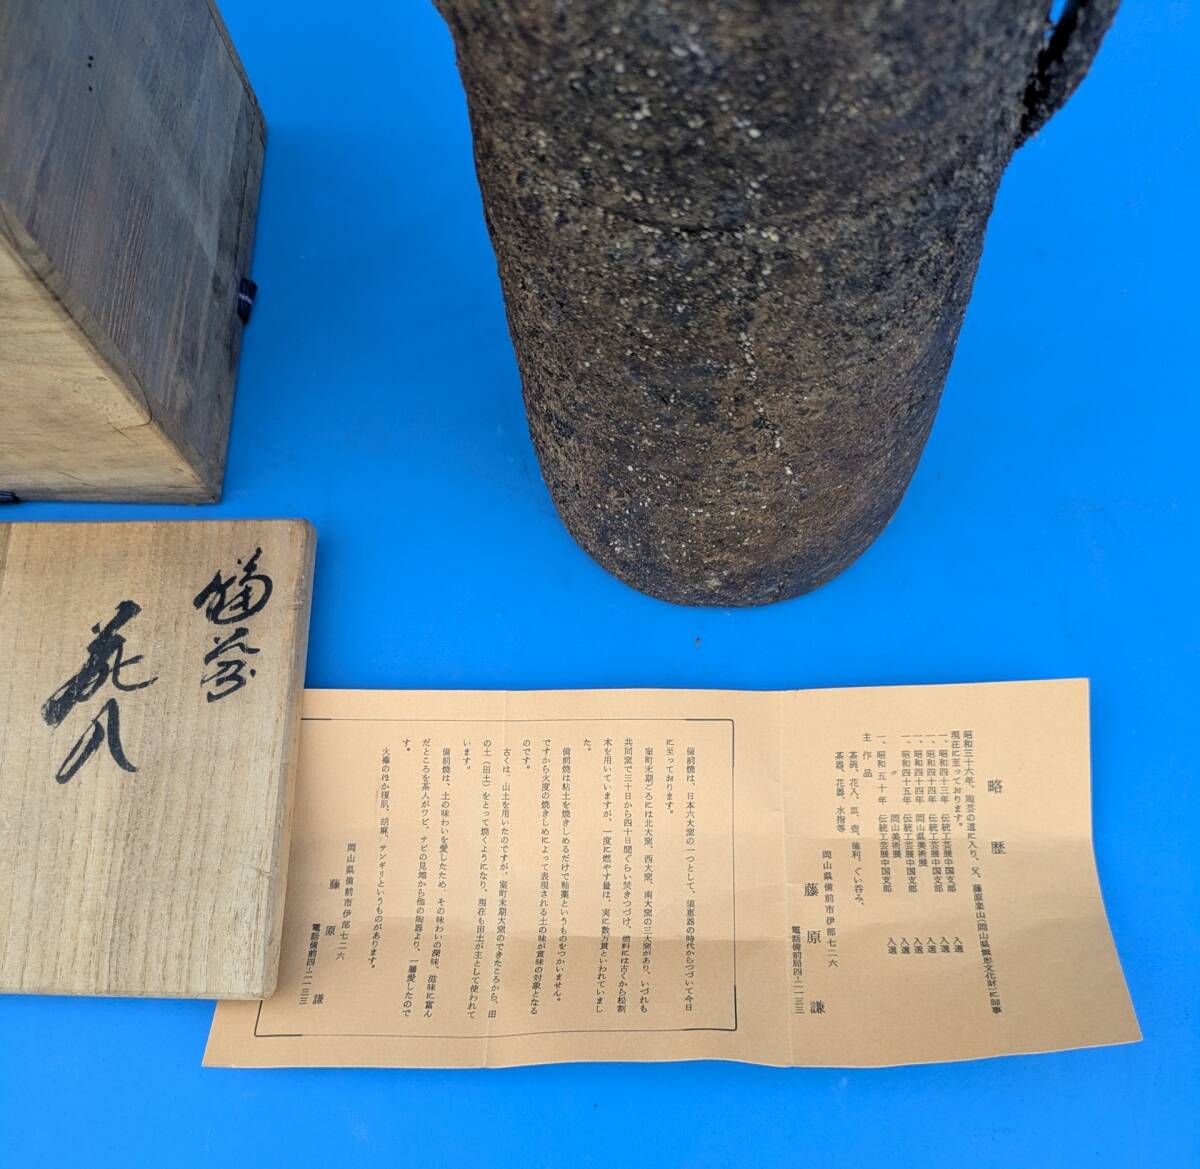 備前
花入
略歴
昭和三十六年、陶芸の道に入り、父、藤原楽山(岡山県無形文化財)に師事
現在に至っております。
一、昭和四十三年 伝統工芸展中国支部 入選
一、昭和四十四年 伝統工芸展中国支部 入選
一、昭和四十四年 岡山県美術展 入選
一、昭和四十五年 伝統工芸展中国支部 入選
〃 岡山美術展 入選
一、昭和五十年 伝統工芸展中国支部 入選
主作品
茶碗、花入、皿、壺、徳利、ぐい呑み、
茶器、花器、水指等
岡山県備前市伊部七二六
藤原謙
電話備前局四-二一三三
備前焼は、日本六大窯の一つとして、須恵器の時代からつづいて今日
に至っております。
室町末期ごろには北大窯、西大窯、南大窯の三大窯があり、いづれも
共同窯で三十日から四十日間ぐらい焚きつづけ、燃料には古くから松割
木を用いていますが、一度に燃やす量は、実に数万貫といわれていまし
た。
備前焼は粘土を焼きしめるだけで釉薬というものをつかいません。
ですから火度の焼きしめによって表現される土の味が賞味の対象となる
のです。
古くは、山土を用いたのですが、室町末期大窯のできたころから、田
の土(田土)をとって焼くようになり、現在も田土が主として使われて
います。
備前焼は、土の味わいを愛したため、その味わいの深味、滋味に富ん
だところを茶人がワビ、サビの見地から他の陶器より、一層愛したので
す。
火襷のほか榎肌、胡麻、サンギリというものがあります。
岡山県備前市伊部七二六
藤原謙
電話備前四-二一三三